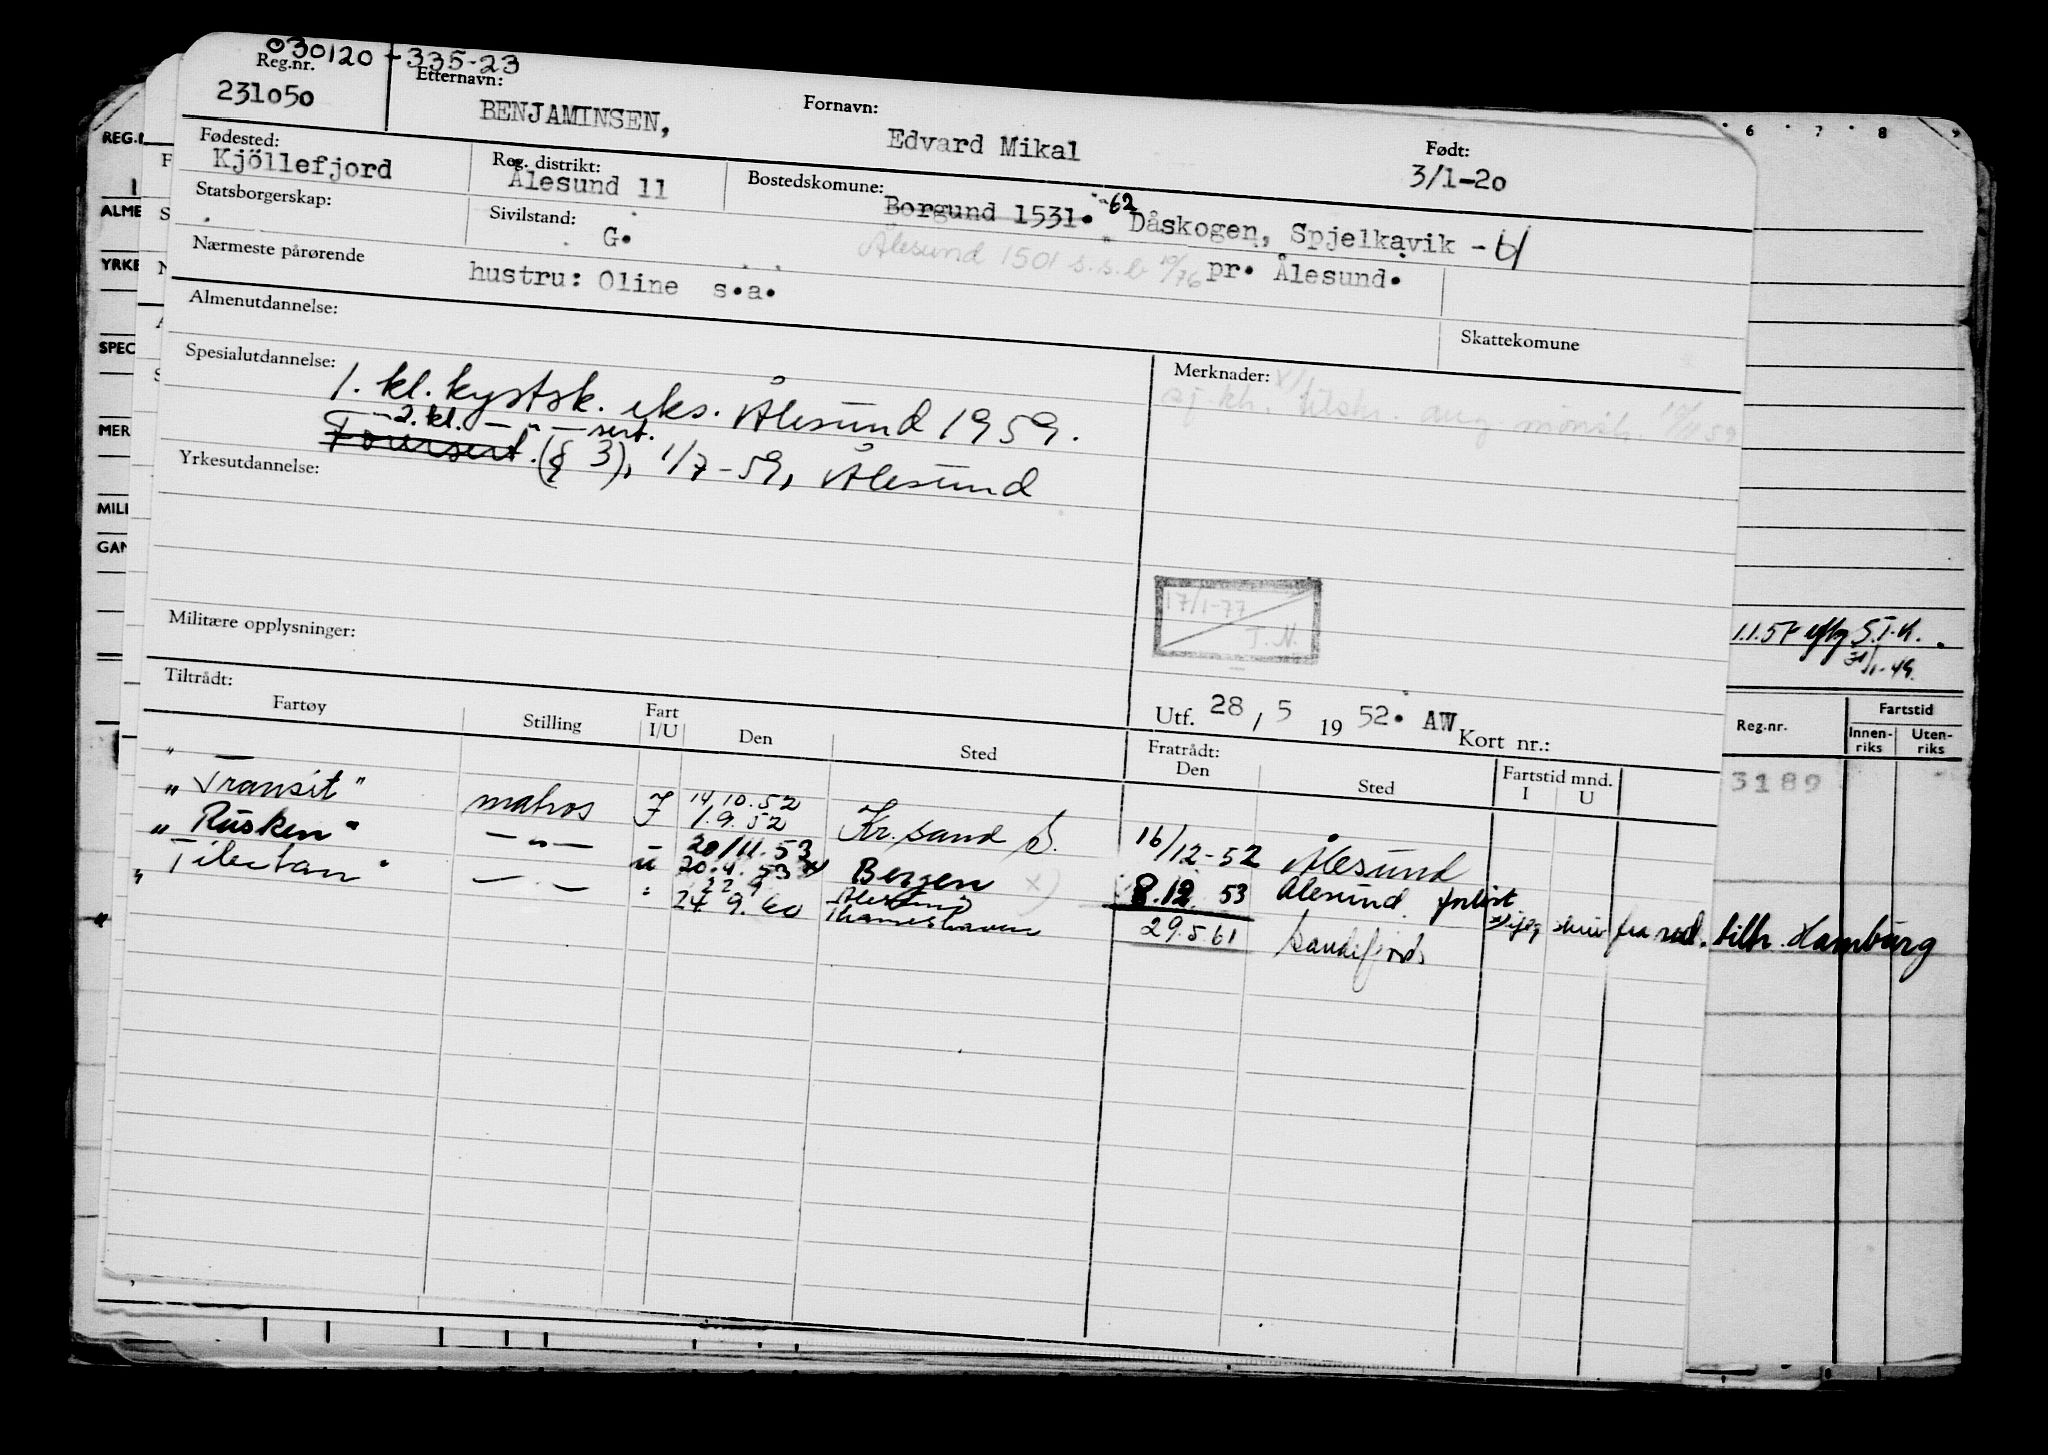 030120-335-23
Reg.nr. Etternavn: Fornavn: Født:
231050 BENJAMINSEN, Edvard Mikal 3/1-20
Fødested: Reg. distrikt: Bostedskomune:
Kjöllefjord Ålesund 11 Borgund 1531. 62 Dåskogen, Spjelkavik -
Statsborgerskap: Sivilstand: G. Ålesund 1501 s.s.b 10/76 pr. Ålesund.
Nærmeste pårørende hustru: Oline s.a.
Almenutdannelse: Skattekomune
Spesialutdannelse: Merknader:
1. kl. kystsk. eks. Ålesund 1959.
- 2. kl. - " - sert.
(§ 3), 1/7-59, Ålesund
Yrkesutdannelse:
17/1-77
T.N.
Militære opplysninger:
Utf. 28, 5 1952. AW Kort nr.:
Tiltrådt: Fratrådt:
Fartøy Stilling Fart I/U Den Sted Den Sted Fartstid mnd. I U
"Transit" matros I 14.10.52 1.9.52 Kr.sand S. 16/12-52 Ålesund
"Rusken" - " - U 20/11.53 20.4.53 x) Bergen x) 8.12 53 Ålesund forlist
"Tibetan" - " - " 22 9 24. 9. 60 Ålesund Thamshaven 29.5.61 Sandefjord
fra red. tilh. Hamburg
REG.
ALME
YRKE
SPEC
MER
MILI
GAN
6 7 8 9
S.T.K.
Reg.nr. Fartstid
Innenriks Utenriks
3189